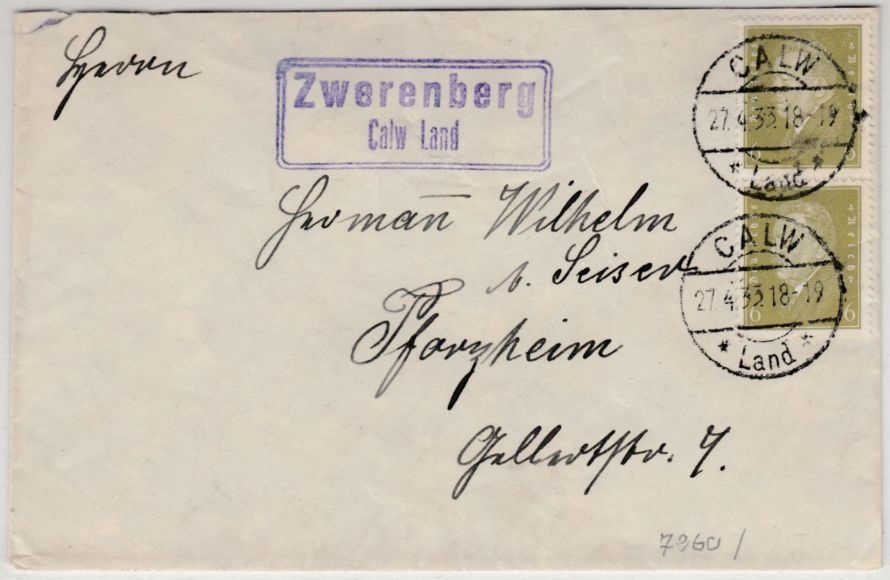 Herrn
Zwerenberg
Calw Land
CALW
27.4.33.18-19
* Land *
CALW
27.4.33.18-19
* Land *
6
6
Hermañ Wilhelm
b. Seiser
Pforzheim
Gellertstr. 7.
7260 /